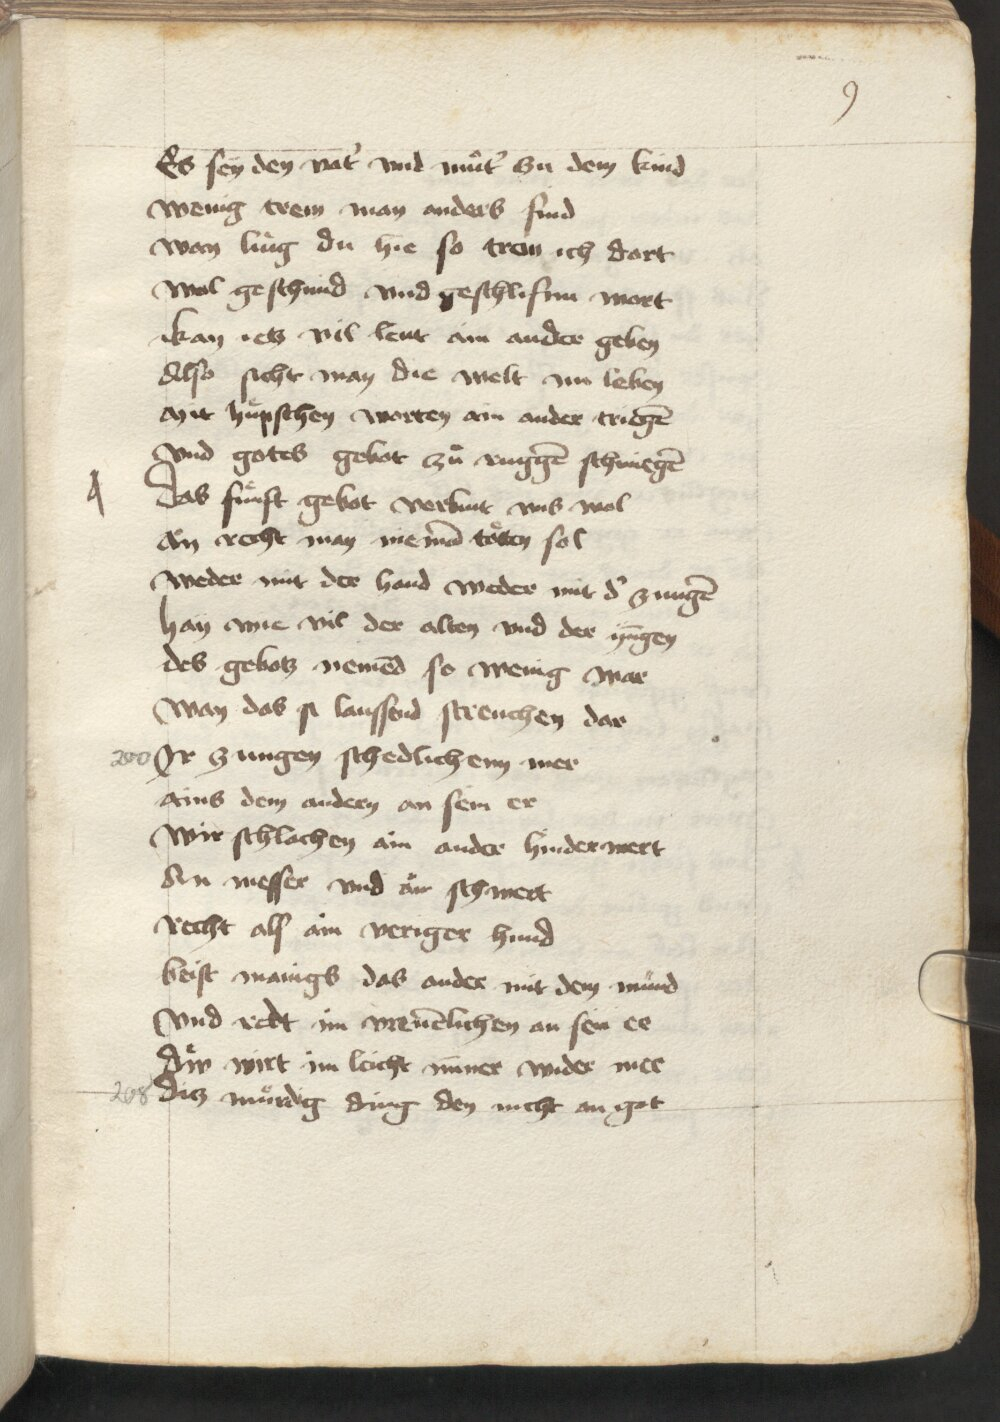 9
Es sey den vat' vnd muͦt' zu dem kind
wenig trew man anders find
wan luͤg du hie so trew ich dort
wol geschmid vnd geschlifnu wort
kan ietz vil leut ain ander geben
Also sicht man die welt nu leben
mit huͤpschen worten ain ander triegē
vnd gotes gebot zuͦ ruggē schmiegē
Das fuͤnft gebot verbiut vns wol
an recht man niemād toͤtten sol
weder mit der hand weder mit d' zungē
hay wie vil der alten vnd der jūgen
des gebotz nemēd so wenig war
wan das si laussend streuchen dar
200 Ir zungen schedlichenn mer
ains dem andern an sein er
wir schlachen ain ander hinderwert
An messer vnd an schwert
recht als ain veriger hund
beist manigs das ander mit dem mund
vnd redt im vreuēlichen an sein ee
Daͤr wirt im leicht nimer wider mee
208 Diz muͤrdig ding den nicht an got